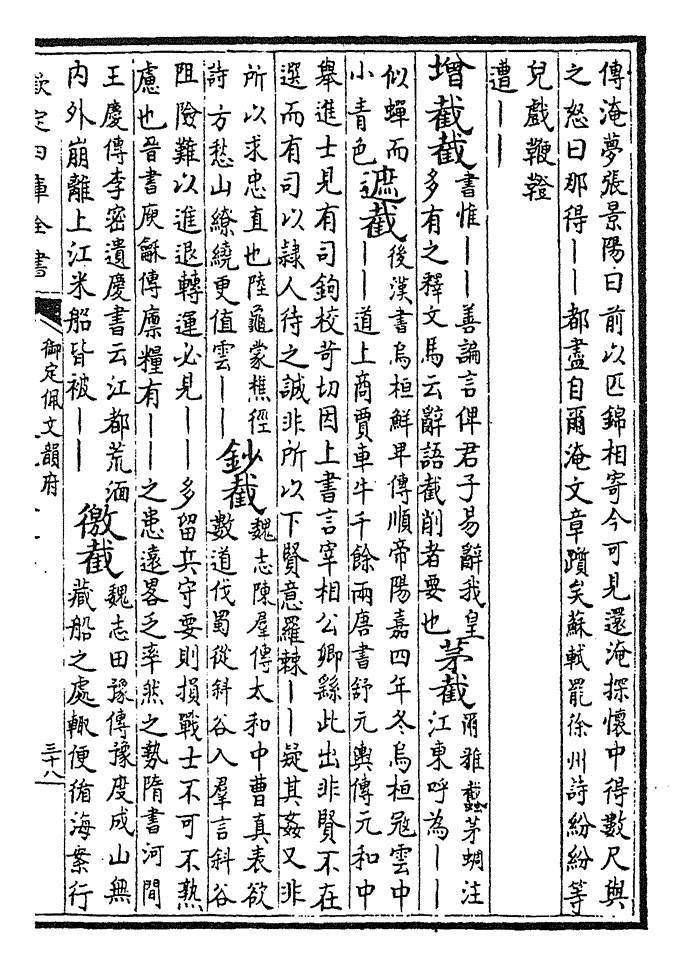 傳淹夢張景陽曰前以匹錦相寄今可見還淹探懷中得數尺與
之怒曰那得——都盡自爾淹文章躓矣蘇軾罷徐州詩紛紛等
兒戲鞭鐙
遭——
增截截
書惟——善諞言俾君子易辭我皇
多有之釋文馬云辭語截削者要也
茅截
爾雅蠽茅蜩注
江東呼為——
似蟬而
小青色
遮截
後漢書烏桓鮮卑傳順帝陽嘉四年冬烏桓冦雲中
——道上商賈車牛千餘兩唐書舒元輿傳元和中
舉進士見有司鉤校苛切因上書言宰相公卿繇此出非賢不在
選而有司以隷人待之誠非所以下賢意羅棘——疑其姦又非
所以求忠直也陸龜蒙樵徑
詩方愁山繚繞更值雲——
鈔截
魏志陳羣傳太和中曹真表欲
數道伐蜀從斜谷入羣言斜谷
阻險難以進退轉運必見——多留兵守要則損戰士不可不熟
慮也晉書庾龢傳廩糧有——之患遠畧乏率然之勢隋書河間
王慶傳李密遺慶書云江都荒湎
內外崩離上江米船皆被——
徼截
魏志田豫傳豫度成山無
藏船之處輙便循海案行
欽定四庫全書
御定佩文韻府
三十八